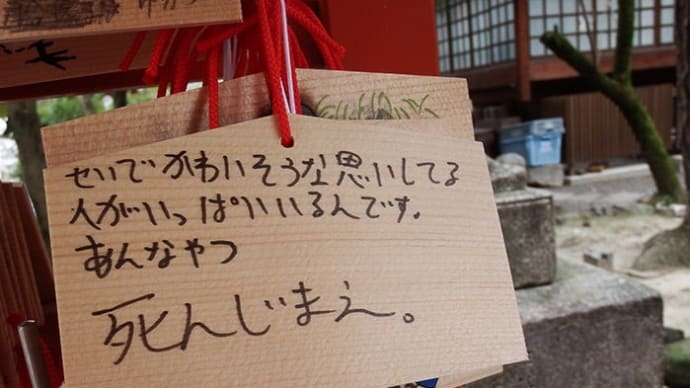 せいでかわいそうな思いしてる
人がいっぱいいるんです。
あんなやつ
死んじまえ。